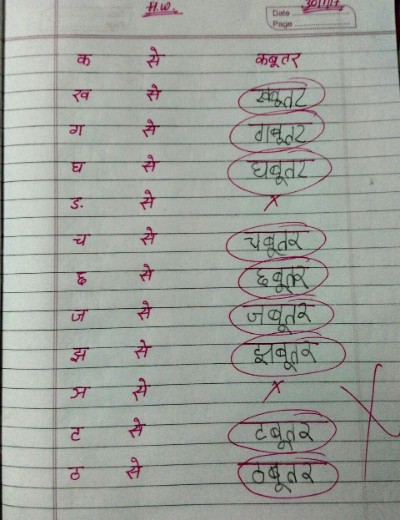 H.W.
Date
Page
क से कबूतर
ख से खबूतर
ग से गबूतर
घ से घबूतर
ङ से x
च से चबूतर
छ से छबूतर
ज से जबूतर
झ से झबूतर
ञ से x
ट से टबूतर
ठ से ठबूतर